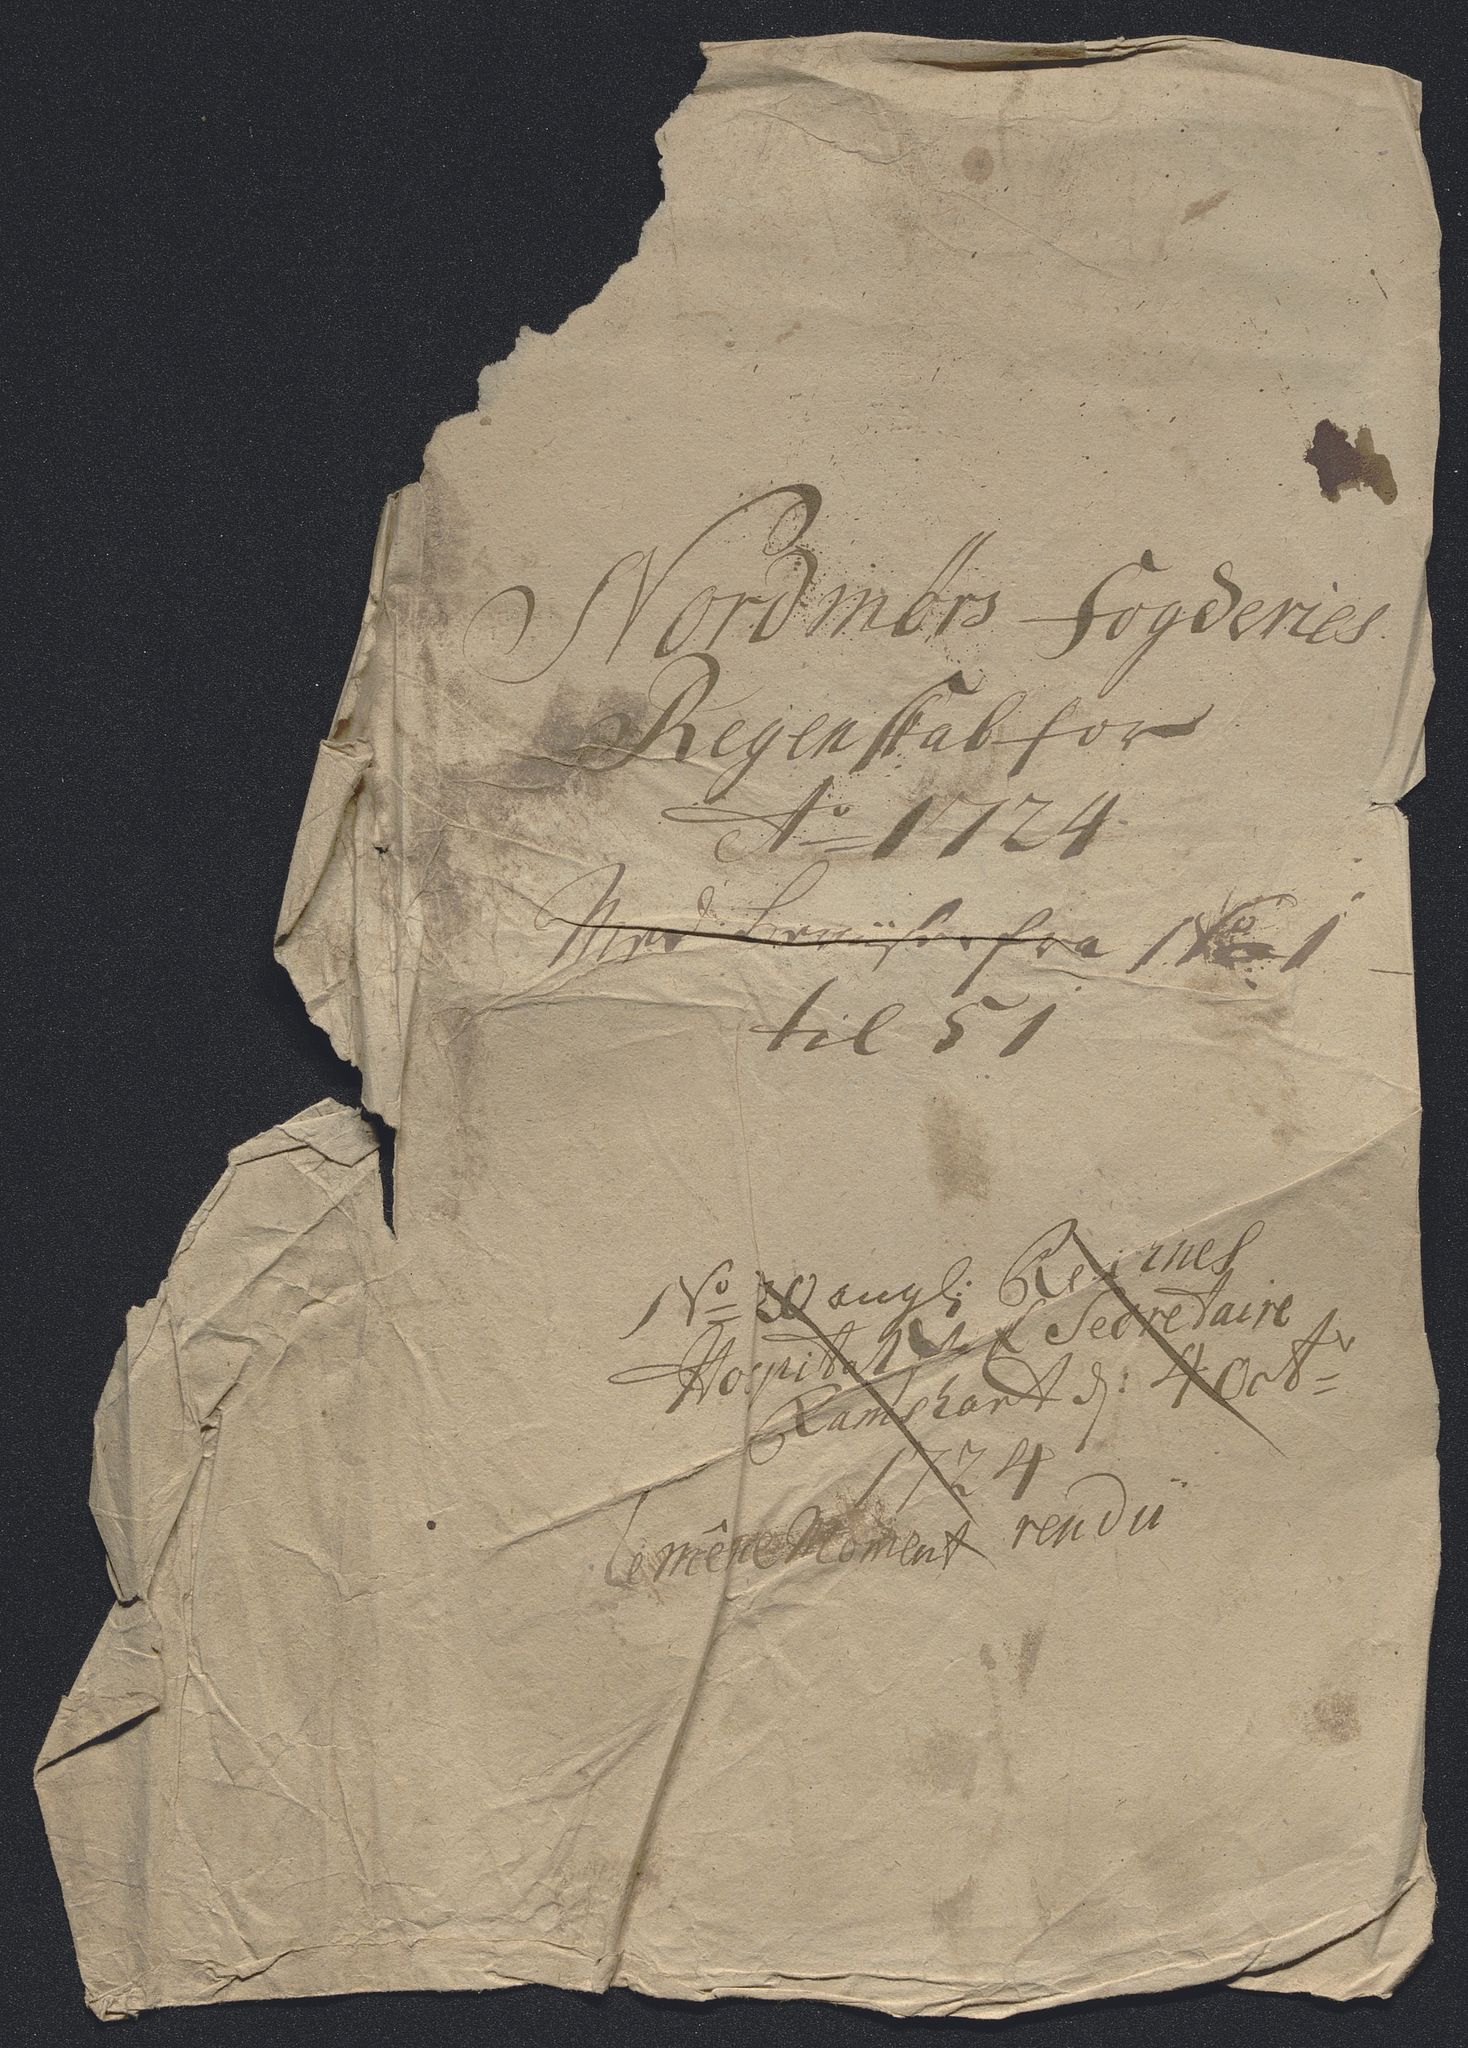 Nordmörs Fogderies
Regenskab for
Ao 1724
Med beviiser fra No 1
til 51
No 30 angl: Reixnes
Hospital til Secretaire
Ramshart d: 4 Octr
1724
le même Moment rendü